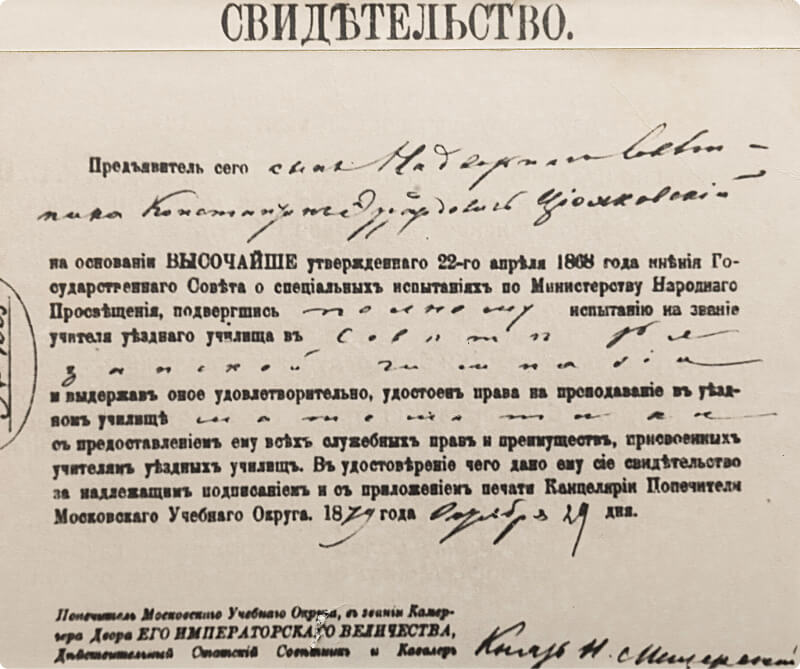 СВИДѢТЕЛЬСТВО.
Предъявитель сего сынъ Надворнаго Совѣт-
ника Константинъ Эдуардовичъ Ціолковскій
на основаніи ВЫСОЧАЙШЕ утвержденнаго 22-го апрѣля 1868 года мнѣнія Го-
сударственнаго Совѣта о спеціальныхъ испытаніяхъ по Министерству Народнаго
Просвѣщенія, подвергшись полному испытанію на званіе
учителя уѣзднаго училища въ Совѣтѣ Ря
занской гимназіи
и выдержавъ оное удовлетворительно, удостоенъ права на преподаваніе въ уѣзд-
номъ училищѣ математики
съ предоставленіемъ ему всѣхъ служебныхъ правъ и преимуществъ, присвоенныхъ
учителямъ уѣздныхъ училищъ. Въ удостовѣреніе чего дано ему сіе свидѣтельство
за надлежащимъ подписаніемъ и съ приложеніемъ печати Канцеляріи Попечителя
Московскаго Учебнаго Округа. 1879 года Октября 29 дня.
Попечитель Московскаго Учебнаго Округа, въ званіи Камер-
гера Двора ЕГО ИМПЕРАТОРСКАГО ВЕЛИЧЕСТВА,
Дѣйствительный Статскій Совѣтникъ и Кавалеръ Князь Н. Мещерскій